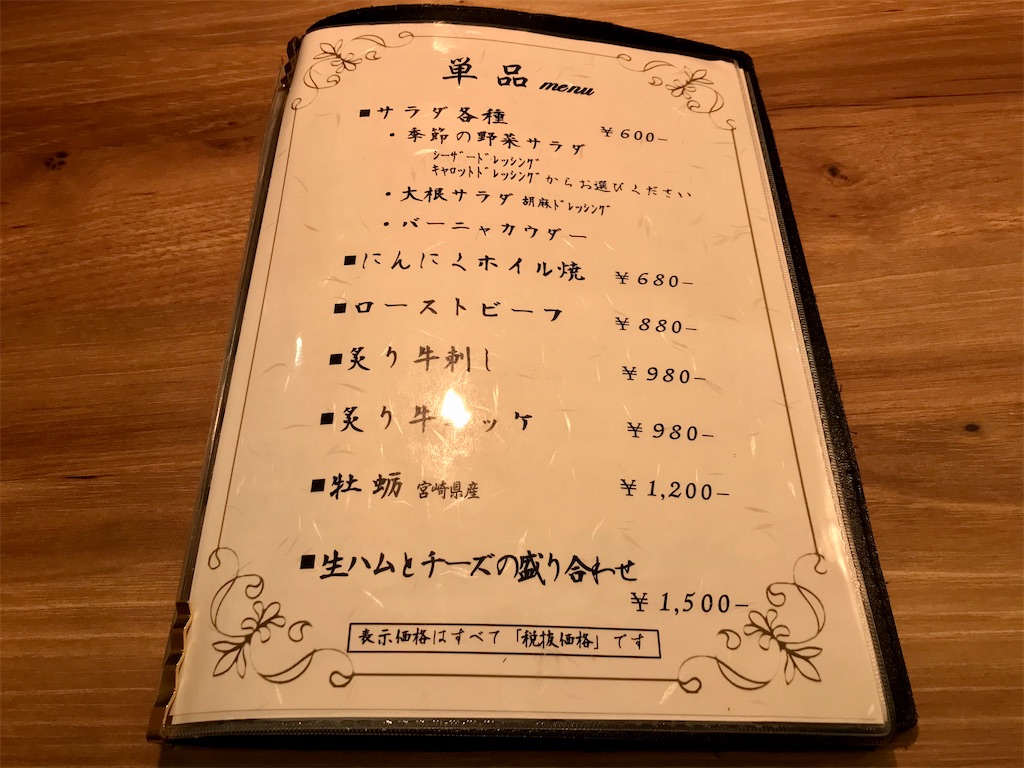 単品 menu
■サラダ各種 ¥600-
・季節の野菜サラダ
シーザードレッシング
キャロットドレッシング からお選びください
・大根サラダ 胡麻ドレッシング
・バーニャカウダー
■にんにくホイル焼 ¥680-
■ローストビーフ ¥880-
■炙り牛刺し ¥980-
■炙り牛ユッケ ¥980-
■牡蛎 宮崎県産 ¥1,200-
■生ハムとチーズの盛り合わせ
¥1,500-
表示価格はすべて「税抜価格」です